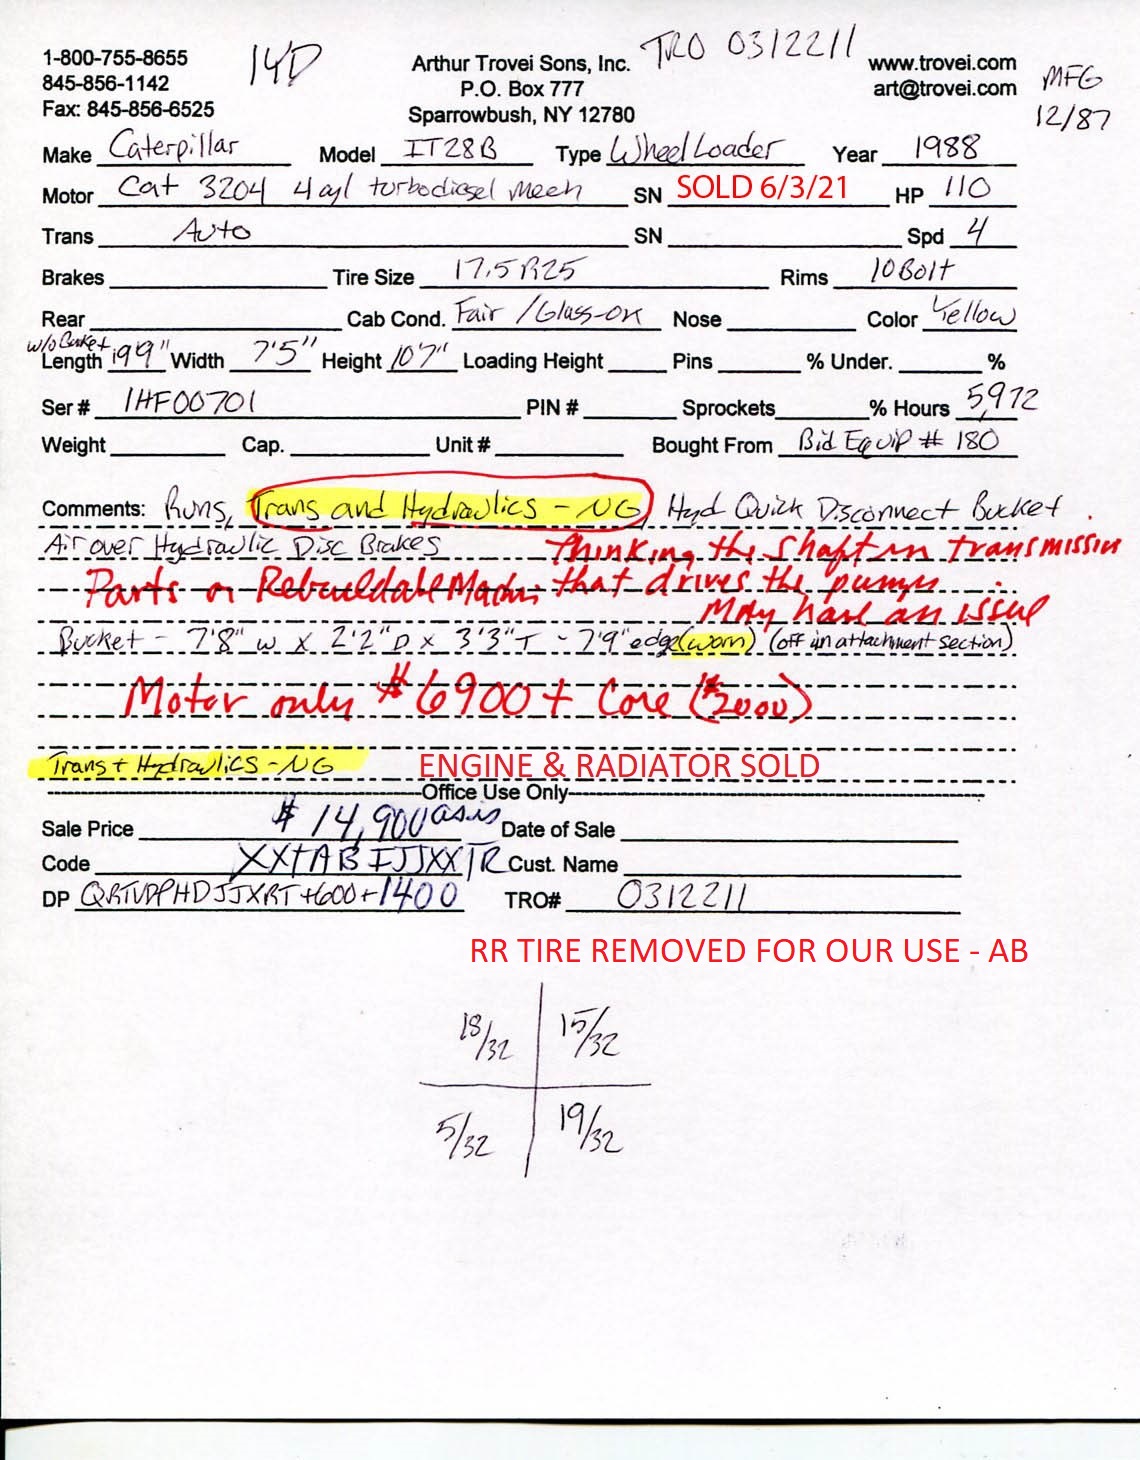 1-800-755-8655
845-856-1142
Fax: 845-856-6525
14D
Arthur Trovei Sons, Inc.
P.O. Box 777
Sparrowbush, NY 12780
TRO 0312211
www.trovei.com
art@trovei.com
MFG
12/87
Make Caterpillar Model IT28B Type Wheel Loader Year 1988
Motor Cat 3204 4cyl turbodiesel Mech SN SOLD 6/3/21 HP 110
Trans Auto SN Spd 4
Brakes Tire Size 17.5R25 Rims 10 Bolt
Rear Cab Cond. Fair /Glass-OK Nose Color Yellow
w/o Bucket
Length 19'9" Width 7'5" Height 10'7" Loading Height Pins % Under. %
Ser # 1HF00701 PIN # Sprockets % Hours 5,972
Weight Cap. Unit # Bought From Bid Equip # 180
Comments: Runs, Trans and Hydraulics - NG, Hyd Quick Disconnect Bucket
Air over Hydraulic Disc Brakes Thinking the shaft in transmission
Parts or Rebuildable Machine that drives the pumps
May have an issue
Bucket - 7'8" W X 2'2" D X 3'3" T - 7'9" edge (worn) (off in attachment section)
Motor only $6900 + Core ($2000)
Trans + Hydraulics - NG ENGINE & RADIATOR SOLD
Office Use Only
Sale Price $14,900 as is Date of Sale
Code XXTABIJJXXTR Cust. Name
DP QRTVPPHDJJXRT +600+1400 TRO# 0312211
RR TIRE REMOVED FOR OUR USE - AB
18/32 15/32
5/32 19/32